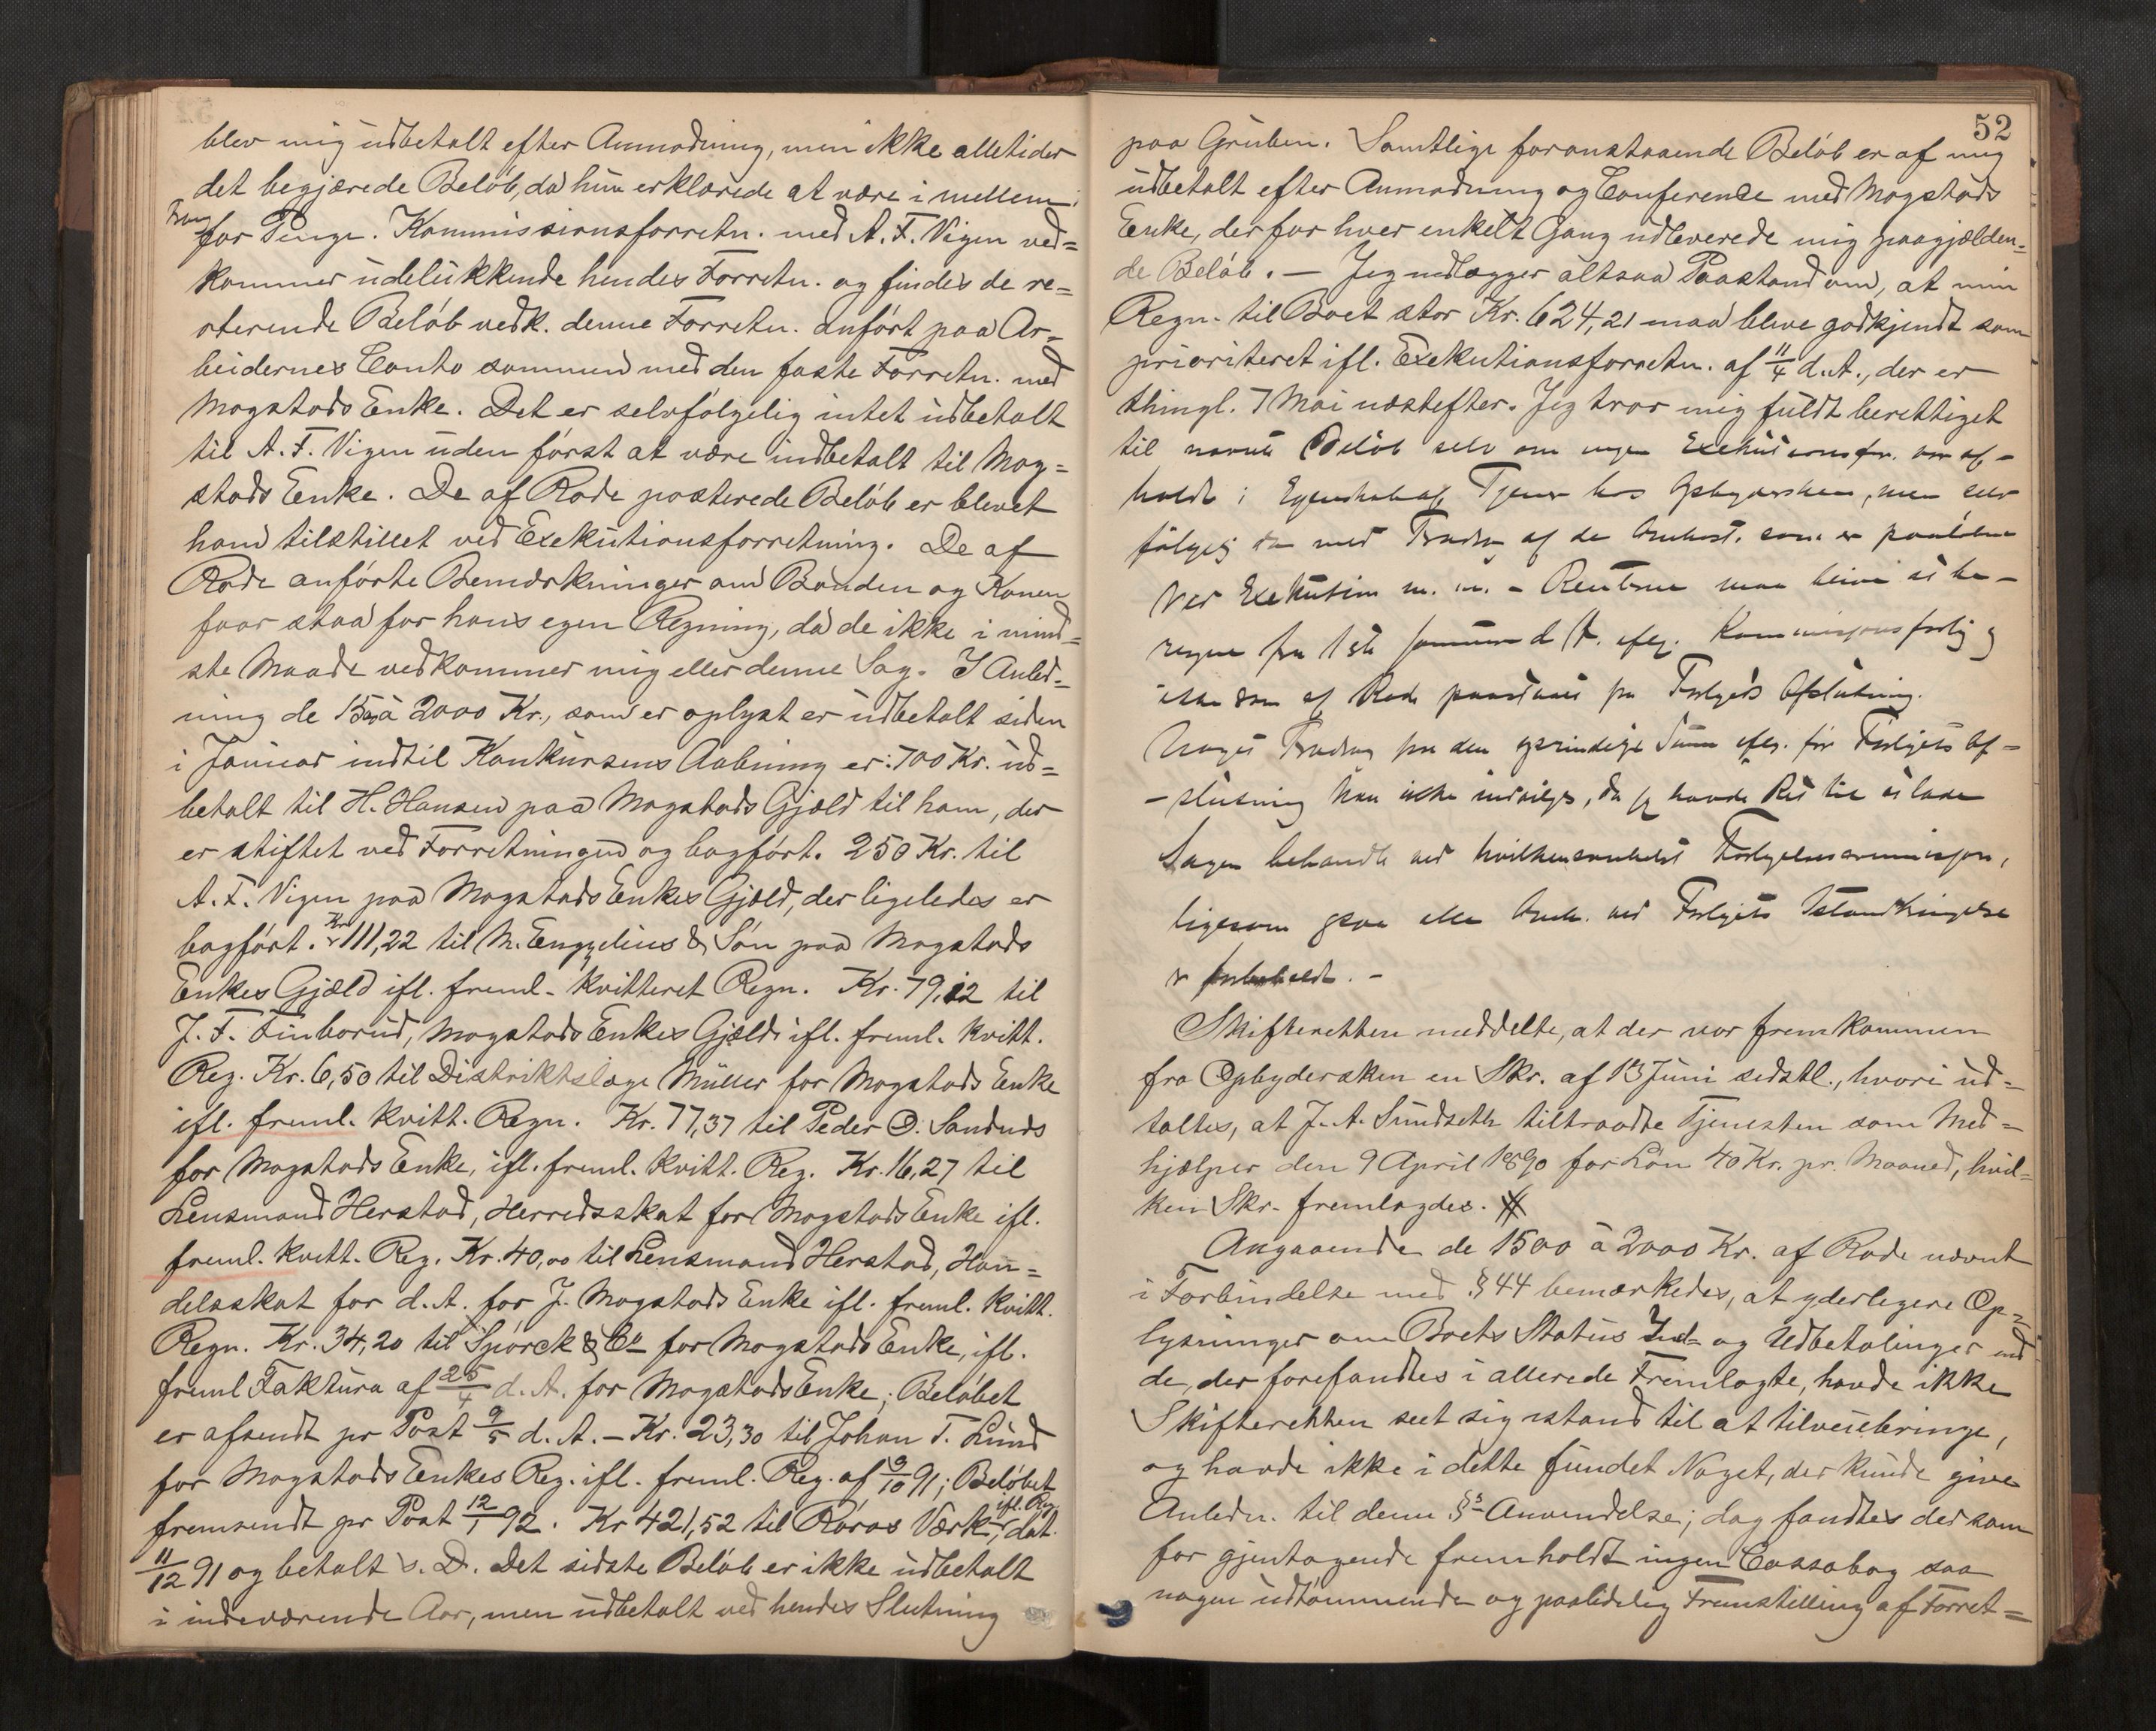 blev mig udbetalt efter Anmodning, men ikke alletider
det begjærede Beløb, da hun erklærede at være i mellem
Trang
for Penge. Kommissionsforretn. med A. F. Vigen ved=
kommer udelukkende hendes Forretn. og findes de re=
sterende Beløb vedk. denne Forretn. anført paa Ar=
beidernes Conto sammen med den faste Forretn. med
Mogstads Enke. Det er selvfølgelig intet udbetalt
til A. F. Vigen uden først at være indbetalt til Mog=
stads Enke. De af Rode posterede Beløb er blevet
ham tilstillet ved Exekutionsforretning. De af
Rode anførte Bemærkninger om Bonden og Konen
faar staa for hans egen Regning, da de ikke i mind=
ste Maade vedkommer mig eller denne Sag. I Anled=
ning de 1500 à 2000 Kr., som er oplyst er udbetalt siden
i Januar indtil Konkursens Aabning er: 700 Kr. ud=
betalt til H. Hansen paa Mogstads Gjæld til ham, der
er stiftet ved Forretningen og bogført. 250 Kr. til
A. F. Vigen paa Mogstads Enkes Gjæld, der ligeledes er
bogført. Kr 111,22 til M. Engzelius & Søn paa Mogstads
Enkes Gjæld ifl. freml. kvitteret Regn. Kr. 79,12 til
J. F. Finborud, Mogstads Enkes Gjæld ifl. freml. kvitt.
Reg. Kr. 6,50 til Distriktslæge Müller for Mogstads Enke
ifl. freml. kvitt. Regn. Kr. 77,37 til Peder O. Sanduds
for Mogstads Enke, ifl. freml. kvitt. Reg. Kr. 16,27 til
Lensmand Herstad, Herredsskat for Mogstads Enke ifl.
freml. kvitt. Reg. Kr. 40,00 til Lensmand Herstad, Han=
delsskat for d. A. for J. Mogstads Enke ifl. freml. kvitt.
Regn. Kr. 34,20 til Spørck & Co for Mogstads Enke, ifl.
freml Faktura af 25/4 d. A. for Mogstads Enke; Beløbet
er afsendt pr Post 9/5 d. A. – Kr. 23,30 til Johan T. Lund
for Mogstads Enkes Reg. ifl. freml. Reg. af 9/10 91; Beløbet
fremsendt pr Post 12/1 92. Kr 421,52 til Røros Værk, ifl. Reg. dat.
11/12 91 og betalt s. D. Det sidste Beløb er ikke udbetalt
i indeværende Aar, men udbetalt ved hendes Slutning
52
paa Gruben. Samtlige foranstaaende Beløb er af mig
udbetalt efter Anmodning og Conference med Mogstads
Enke, der for hver enkelt Gang udleverede mig paagjælden=
de Beløb. – Jeg nedlægger altsaa Paastand om, at min
Regn. til Boet stor Kr. 624,21 maa blive godkjendt som
prioriteret ifl. Exekutionsforretn. af 11/4 d. A., der er
thingl. 7 Mai næstefter. Jeg tror mig fuldt berettiget
til nævnte Beløb selv om ingen Exekutionsfr. var af–
holdt i Egenskab af Tjener hos Opbydersken, men selv
følgelig da med Fradrag af de Omkost. som er paaløbne
ved Exekution m. m. – Renterne maa blive at be–
regne fra 1ste Januar d. A. efter Kommissionsforlig og
ikke som af Rode paastaaet fra Forligets Afslutning.
Noget Fradrag fra den oprindelige Sum efter før Forligets Af–
–slutning kan ikke indvilges, da jeg havde Ret til at lade
Sagen behandle ved hvilkensomhelst Forligelseskommission,
ligesom ogsaa alle Omk. ved Forligets Istandbringelse
er forbeholdt. –
Skifteretten meddelte, at der var fremkommen
fra Opbydersken en Skr. af 13 Juni sidstl., hvori ud=
taltes, at J. A. Sundseth tiltraadte Tjenesten som Med=
hjælper den 9 April 1890 for Løn 40 Kr. pr. Maaned, hvil=
ken Skr. fremlagdes.
Angaaende de 1500 à 2000 Kr. af Rode nævnt
i Forbindelse med § 44 bemærkedes, at yderligere Op=
lysninger om Boets Status Ind= og Udbetalinger end
de, der forefandtes i allerede Fremlagte, havde ikke
Skifteretten seet sig istand til at tilveiebringe,
og havde ikke i dette fundet Noget, der kunde give
Anledn. til denne §s Anvendelse; dog fandtes der som
for gjentagende fremholdt ingen Cassabog saa
nogen udtømmende og paalidelig Fremstilling af Forret=